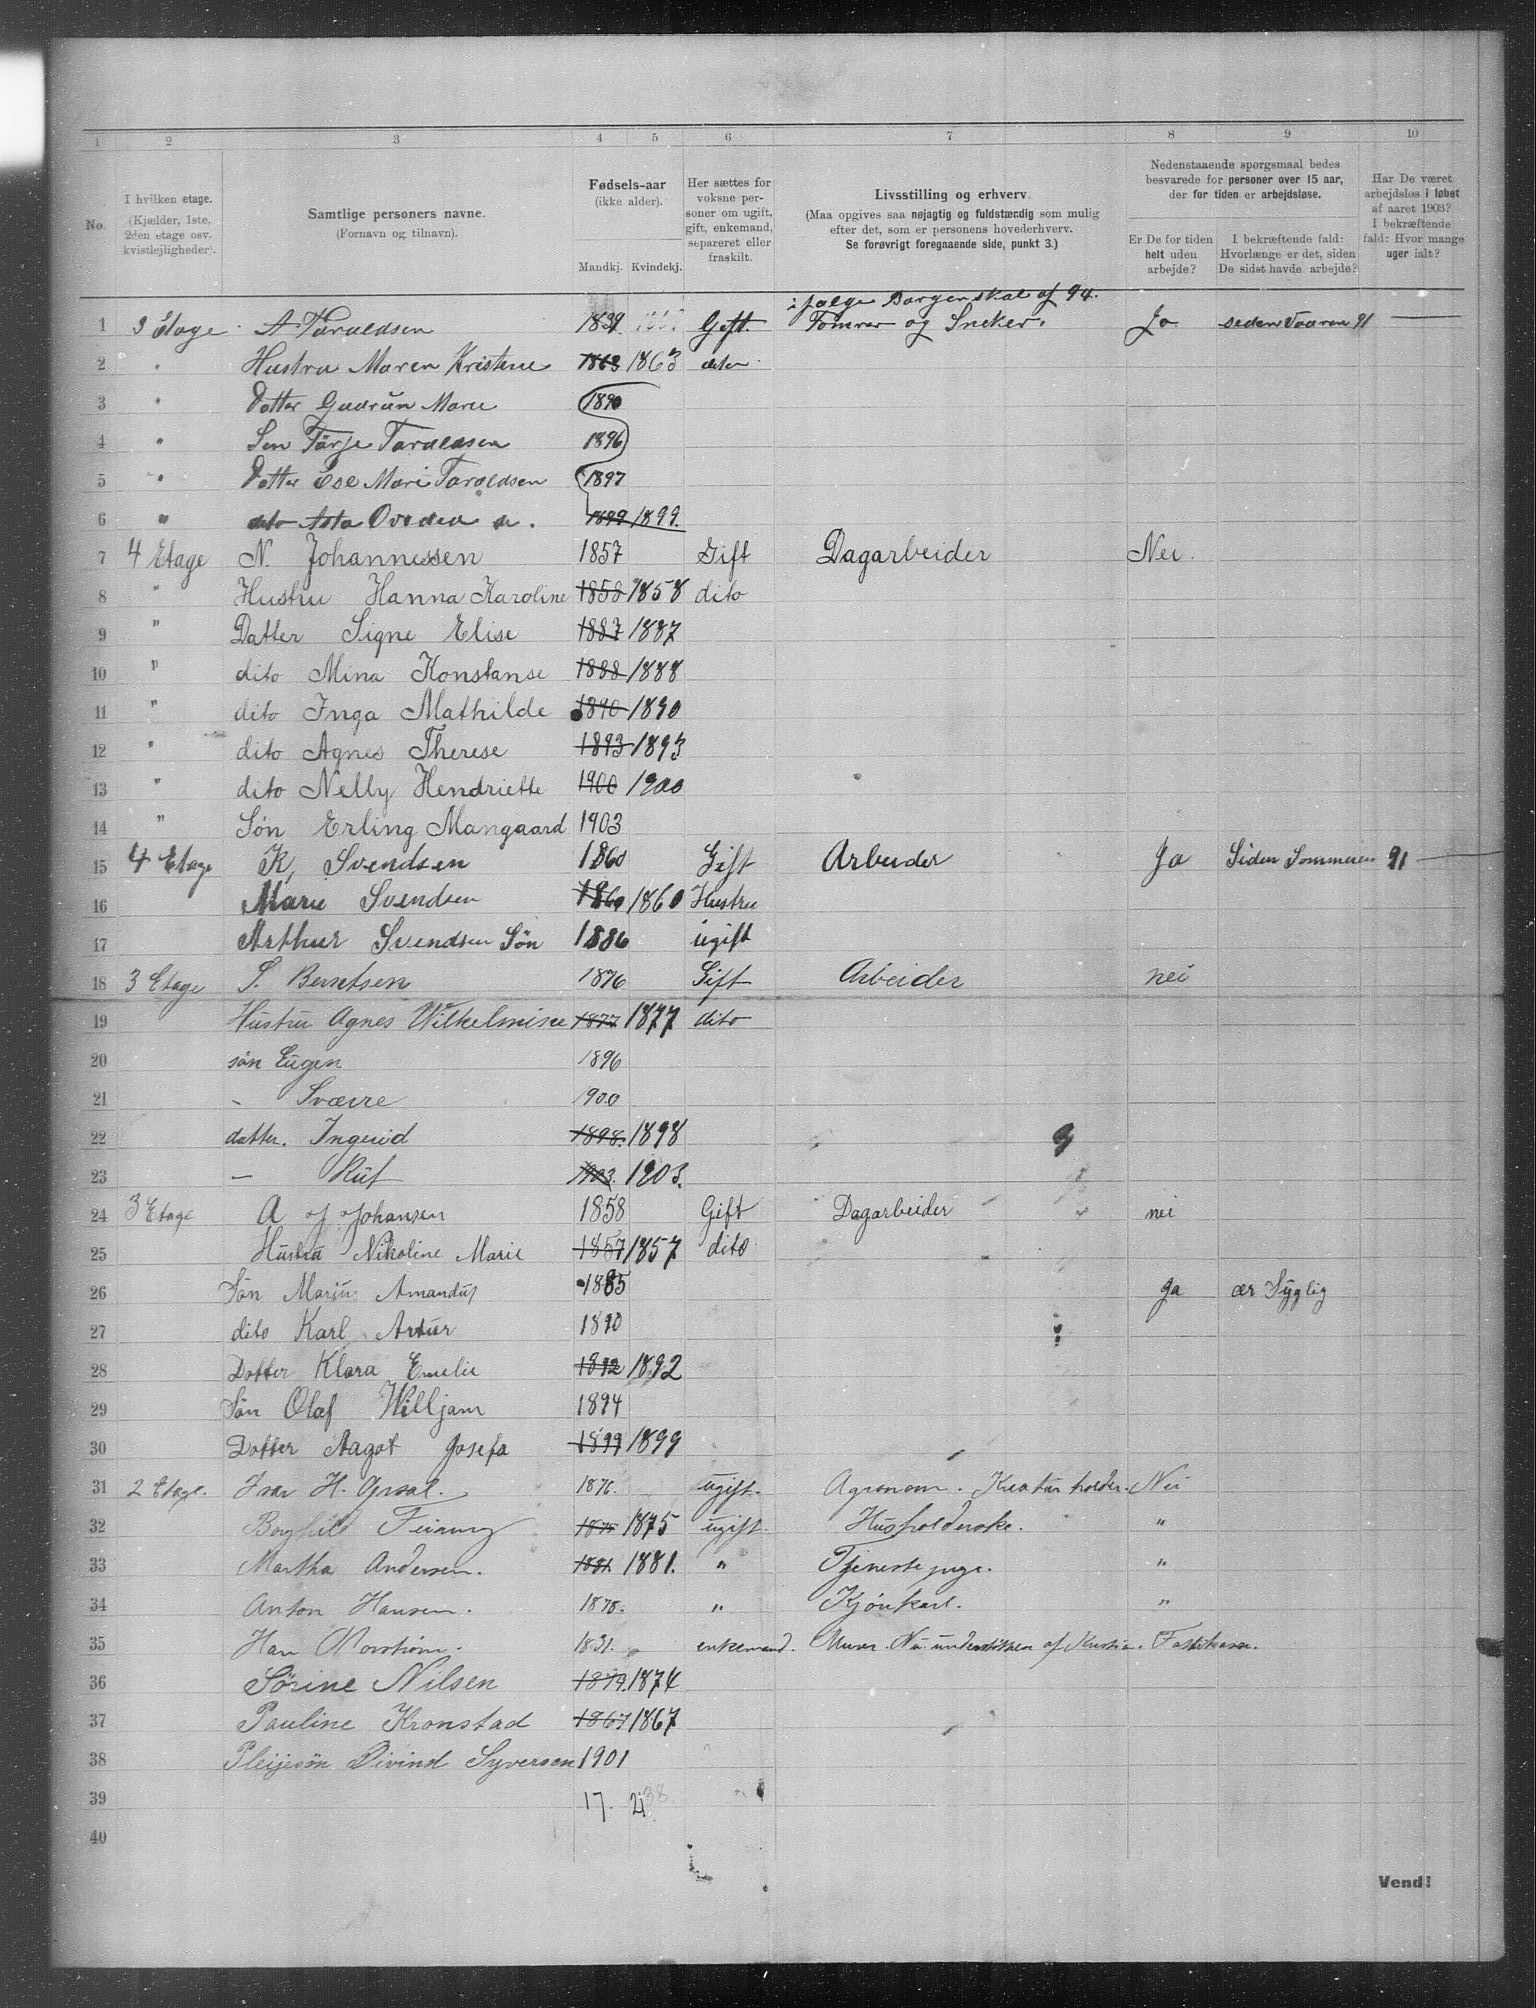 1 2 3 4 5 6 7 8 9 10
No.
I hvilken etage.
(Kjælder, 1ste, 2den etage osv. kvistlejligheder).
Samtlige personers navne.
(Fornavn og tilnavn).
Fødsels-aar
(ikke alder).
Mandkj. Kvindekj.
Her sættes for voksne personer om ugift, gift, enkemand, separeret eller fraskilt.
Livsstilling og erhverv.
(Maa opgives saa nøjagtig og fuldstændig som mulig efter det, som er personens hovederhverv.
Se forøvrigt foregaaende side, punkt 3.)
Nedenstaaende spørgsmaal bedes besvarede for personer over 15 aar, der for tiden er arbejdsløse.
Er De for tiden helt uden arbejde?
I bekræftende fald: Hvorlænge er det, siden De sidst havde arbejde?
Har De været arbejdsløs i løbet af aaret 1903? I bekræftende fald: Hvor mange uger ialt?
i følge Borgerskal af 94.
1 3 Etage A Taraldsen 1839 Gift. Tømrer og Sneker. Ja seden Vaaren 91
2 " Hustru Maren Kristene 1863 1863 dito
3 " Datter Gudrun Marie 1890
4 " Søn Tørje Taraldsen 1896
5 " Datter Ese Mari Taraldsen 1897
6 " dito Asta 1899 1899.
7 4 Etage N. Johannessen 1857 Gift Dagarbeider Nei.
8 " Hustru Hanna Karoline 1858 1858 dito
9 " Datter Signe Elise 1887 1887
10 " dito Mina Konstanse 1888 1888
11 " dito Inga Mathilde 1890 1890
12 " dito Agnes Therese 1893 1893
13 " dito Nelly Hendriette 1900 1900
14 " Søn Erling Mangaard 1903
15 4 Etage K, Svendsen 1860 Gift Arbeider Ja Siden Sommeren 91
16 Marie Svendsen 1860 1860 Hustru
17 Arthur Svendsen Søn 1886 ugift
18 3 Etage S. Berntsen 1876 Gift Arbeider nei
19 Hustru Agnes Wilhelmine 1877 1877 dito
20 søn Eugen 1896
21 - Sværre 1900
22 datter. Ingerid 1898. 1898
23 — Rut 1903. 1903.
24 3 Etage A J Johansen 1858 Gift Dagarbeider nei
25 Hustru Nikoline Marie 1857 1857 dito
26 Søn Marius Amandus 1885 Ja ær Syglig
27 dito Karl Artur 1890
28 Dotter Klara Emelie 1892 1892
29 Søn Olaf Willjam 1894
30 Dotter Aagot Josefa 1899 1899
31 2 Etage. Ivar H. 1876. ugift. Agronom. Nei
32 Borghild 1875 1875 ugift. Husholderske. "
33 Martha Andersen. 1881 1881. " Tjenestepige. "
34 Anton Hansen. 1878. " "
35 1831. enkemand. Murer. Nu understøttes af Kristia. Fattikasse.
36 Sørine Nilsen 1874
37 Pauline Kronstad 1867 1867
38 Pleijesøn Øivind Syversen 1901
39 17. 21 38.
40
Vend!